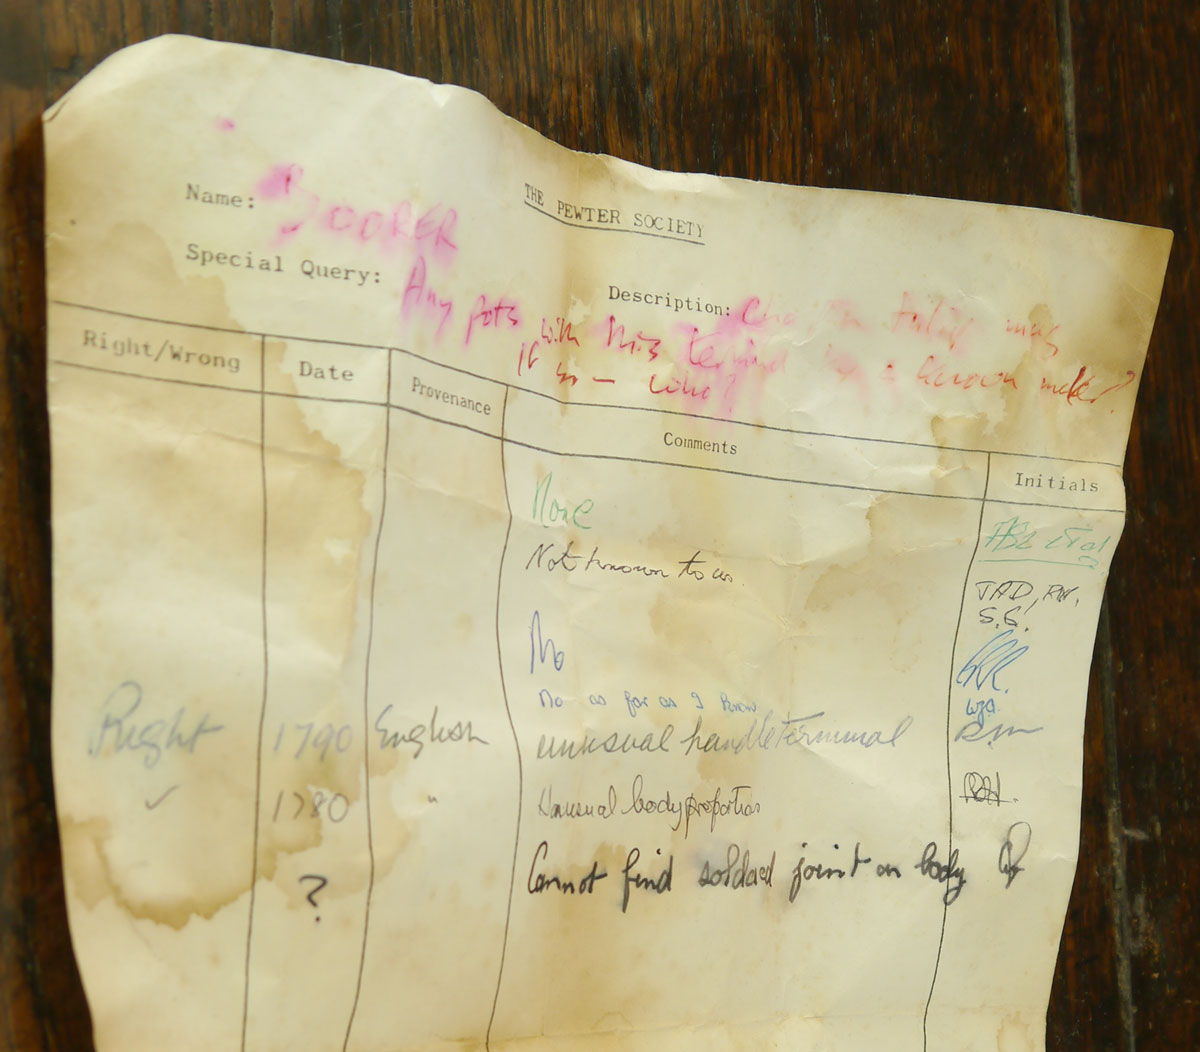 THE PEWTER SOCIETY
Name: BOORER
Special Query: Any pots with this terminal by a known maker?
If so - who?
Description: tulip mug
Right/Wrong Date Provenance Comments Initials
None
Not known to us. JAD, RW.
S.G.
No
No as far as I know
Right 1790 English unusual handle terminal
✓ 1780 " Unusual body proportions
? Cannot find soldered joint on body